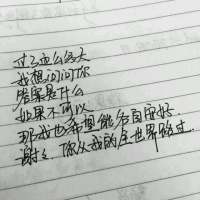 过了这么多天
我想问问你
结果是什么
如果不可以
那我也希望能各自安好
谢谢你从我的全世界路过